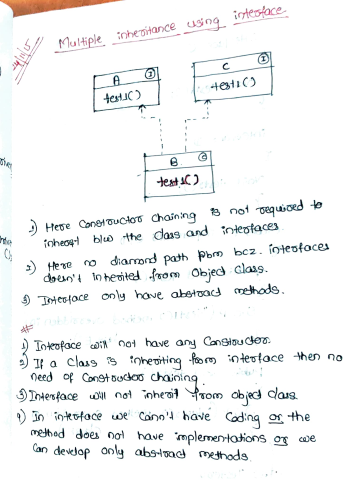 Multiple inheritance using interface
A I
test1()
C I
test1()
B C
test1()
1) Here Constructor chaining is not required to
inherit b/w the class and interfaces
2) Here no diamond path pbm bcz. interfaces
doesn't inherited from Object class.
3) Interface only have abstract methods.
#
1) Interface will not have any Constructor.
2) If a class is inheriting from interface then no
need of Constructor chaining
3) Interface will not inherit from object class
4) In interface we cann't have Coding or the
method does not have implementations or we
Can develop only abstract methods